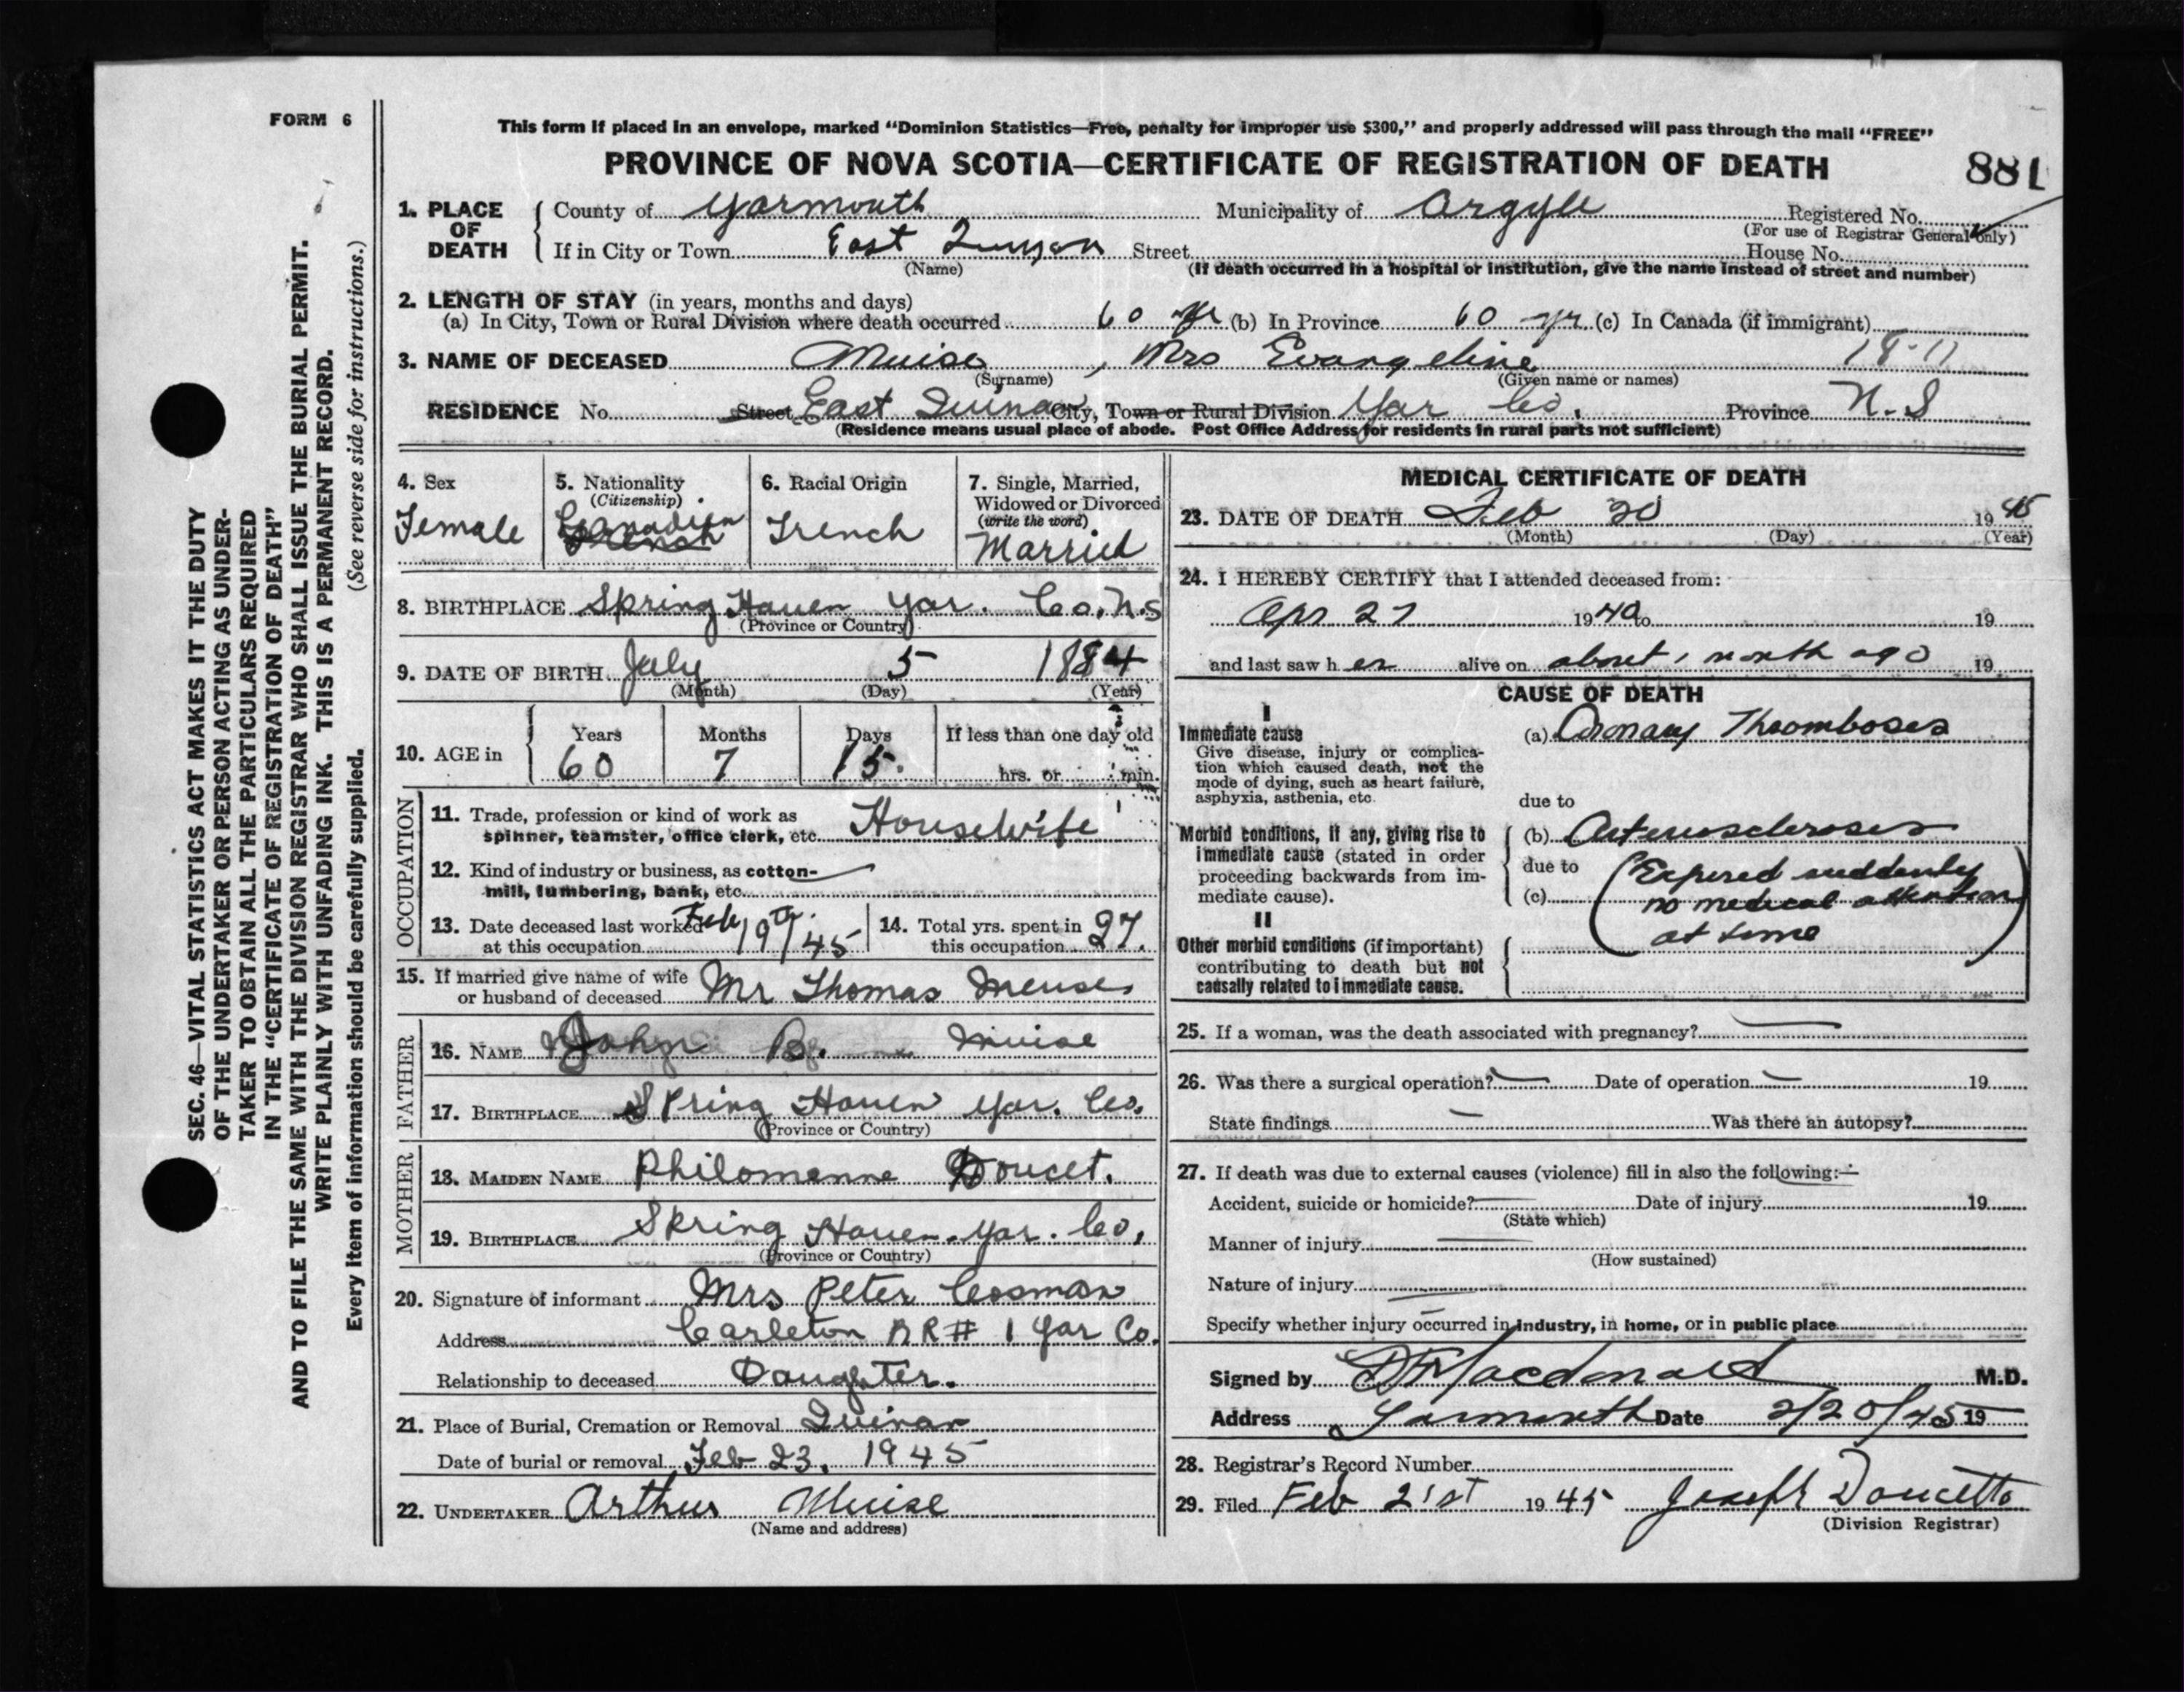 FORM 6
This form if placed in an envelope, marked "Dominion Statistics—Free, penalty for improper use $300," and properly addressed will pass through the mail "FREE"
PROVINCE OF NOVA SCOTIA—CERTIFICATE OF REGISTRATION OF DEATH
881
1. PLACE OF DEATH { County of Yarmouth Municipality of Argyle Registered No.
(For use of Registrar General only)
If in City or Town East Street House No.
(Name) (If death occurred in a hospital or institution, give the name instead of street and number)
2. LENGTH OF STAY (in years, months and days)
(a) In City, Town or Rural Division where death occurred 60 yr (b) In Province 60 yr (c) In Canada (if immigrant)
3. NAME OF DECEASED Muise, Mrs Evangeline 18-11
(Surname) (Given name or names)
RESIDENCE No. Street East Quinan City, Town or Rural Division Yar Co. Province N.S
(Residence means usual place of abode. Post Office Address for residents in rural parts not sufficient)
4. Sex
Female
5. Nationality
(Citizenship)
Canadian
French
6. Racial Origin
French
7. Single, Married, Widowed or Divorced
(write the word)
Married
8. BIRTHPLACE Spring Haven Yar. Co. N.S
(Province or Country)
9. DATE OF BIRTH July 5 1884
(Month) (Day) (Year)
10. AGE in { Years Months Days If less than one day old
60 7 15. hrs. or min.
OCCUPATION
11. Trade, profession or kind of work as
spinner, teamster, office clerk, etc. Housewife
12. Kind of industry or business, as cotton-
mill, lumbering, bank, etc.
13. Date deceased last worked
at this occupation Feb 19th/45
14. Total yrs. spent in
this occupation 27.
15. If married give name of wife
or husband of deceased Mr Thomas Meuse
FATHER
16. NAME John B. Muise
17. BIRTHPLACE Spring Haven Yar. Co.
(Province or Country)
MOTHER
18. MAIDEN NAME Philomenne Doucet.
19. BIRTHPLACE Spring Haven. Yar. Co,
(Province or Country)
20. Signature of informant Mrs Peter Cosman
Address Carleton RR# 1 Yar Co.
Relationship to deceased Daughter.
21. Place of Burial, Cremation or Removal Quinan
Date of burial or removal Feb 23, 1945
22. UNDERTAKER Arthur Muise
(Name and address)
MEDICAL CERTIFICATE OF DEATH
23. DATE OF DEATH Feb 20 1945
(Month) (Day) (Year)
24. I HEREBY CERTIFY that I attended deceased from:
Apr 27 1940 to 19
and last saw her alive on about 1 month ago 19
CAUSE OF DEATH
I
Immediate cause
Give disease, injury or complica-
tion which caused death, not the
mode of dying, such as heart failure,
asphyxia, asthenia, etc.
(a) Coronary Thromboses
due to
Morbid conditions, if any, giving rise to
immediate cause (stated in order
proceeding backwards from im-
mediate cause).
(b) Arteriosclerosis
due to
(c)
(Expired suddenly
no medical attention
at time)
II
Other morbid conditions (if important)
contributing to death but not
causally related to immediate cause.
25. If a woman, was the death associated with pregnancy? —
26. Was there a surgical operation? — Date of operation — 19
State findings — Was there an autopsy?
27. If death was due to external causes (violence) fill in also the following:—
Accident, suicide or homicide? Date of injury 19
(State which)
Manner of injury
(How sustained)
Nature of injury
Specify whether injury occurred in industry, in home, or in public place
Signed by Macdonald M.D.
Address Yarmouth Date 2/20/45 19
28. Registrar's Record Number
29. Filed Feb 21st 1945 Joseph Doucette
(Division Registrar)
SEC. 46—VITAL STATISTICS ACT MAKES IT THE DUTY
OF THE UNDERTAKER OR PERSON ACTING AS UNDER-
TAKER TO OBTAIN ALL THE PARTICULARS REQUIRED
IN THE "CERTIFICATE OF REGISTRATION OF DEATH"
AND TO FILE THE SAME WITH THE DIVISION REGISTRAR WHO SHALL ISSUE THE BURIAL PERMIT.
WRITE PLAINLY WITH UNFADING INK. THIS IS A PERMANENT RECORD.
Every item of information should be carefully supplied. (See reverse side for instructions.)